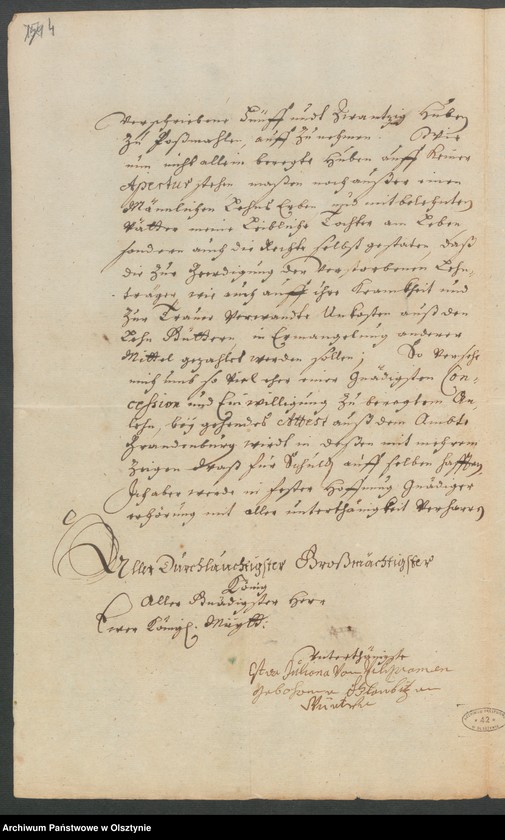 1594
verschriebene Fünff undt Zwantzig Huben
zu Poßmahlen, auff zu nehmen. Wie
nun nicht allein beregte Huben auff keiner
Apertur stehen maßen noch außer einen
Männlichen Lehns Erben und mitbelehnten
Vätter meine Leibliche Tochter am Leben
sondern auch die Rechte selbst gestaten, daß
die zur Beerdigung der verstorbenen Lehn-
träger, wie auch auff ihre Kranckheit und
zur Trauer verwandte Unkosten auß den
Lehn Güttern, in Ermangelung anderer
Mittel gezahlet werden sollen; So versehe
mich umb so viel eher einer Gnädigsten Con-
cession und Einwilligung zu beregtem An-
lehn, bey gehendes Attest auß dem Ambte
Brandenburg wirdt in deßen mit mehrem
zeigen waß für Schuld auff selben hafften,
Ich aber werde in fester Hoffnung Gnädiger
erhörung mit aller unterthänigkeit verharren
Aller Durchläuchtigster Großmächtigster
König
Aller Gnädigster Herr
Ewer Königl. Maytt.
Unterthänigste
Juliana von
gebohrne
42
Archiwum Państwowe w Olsztynie